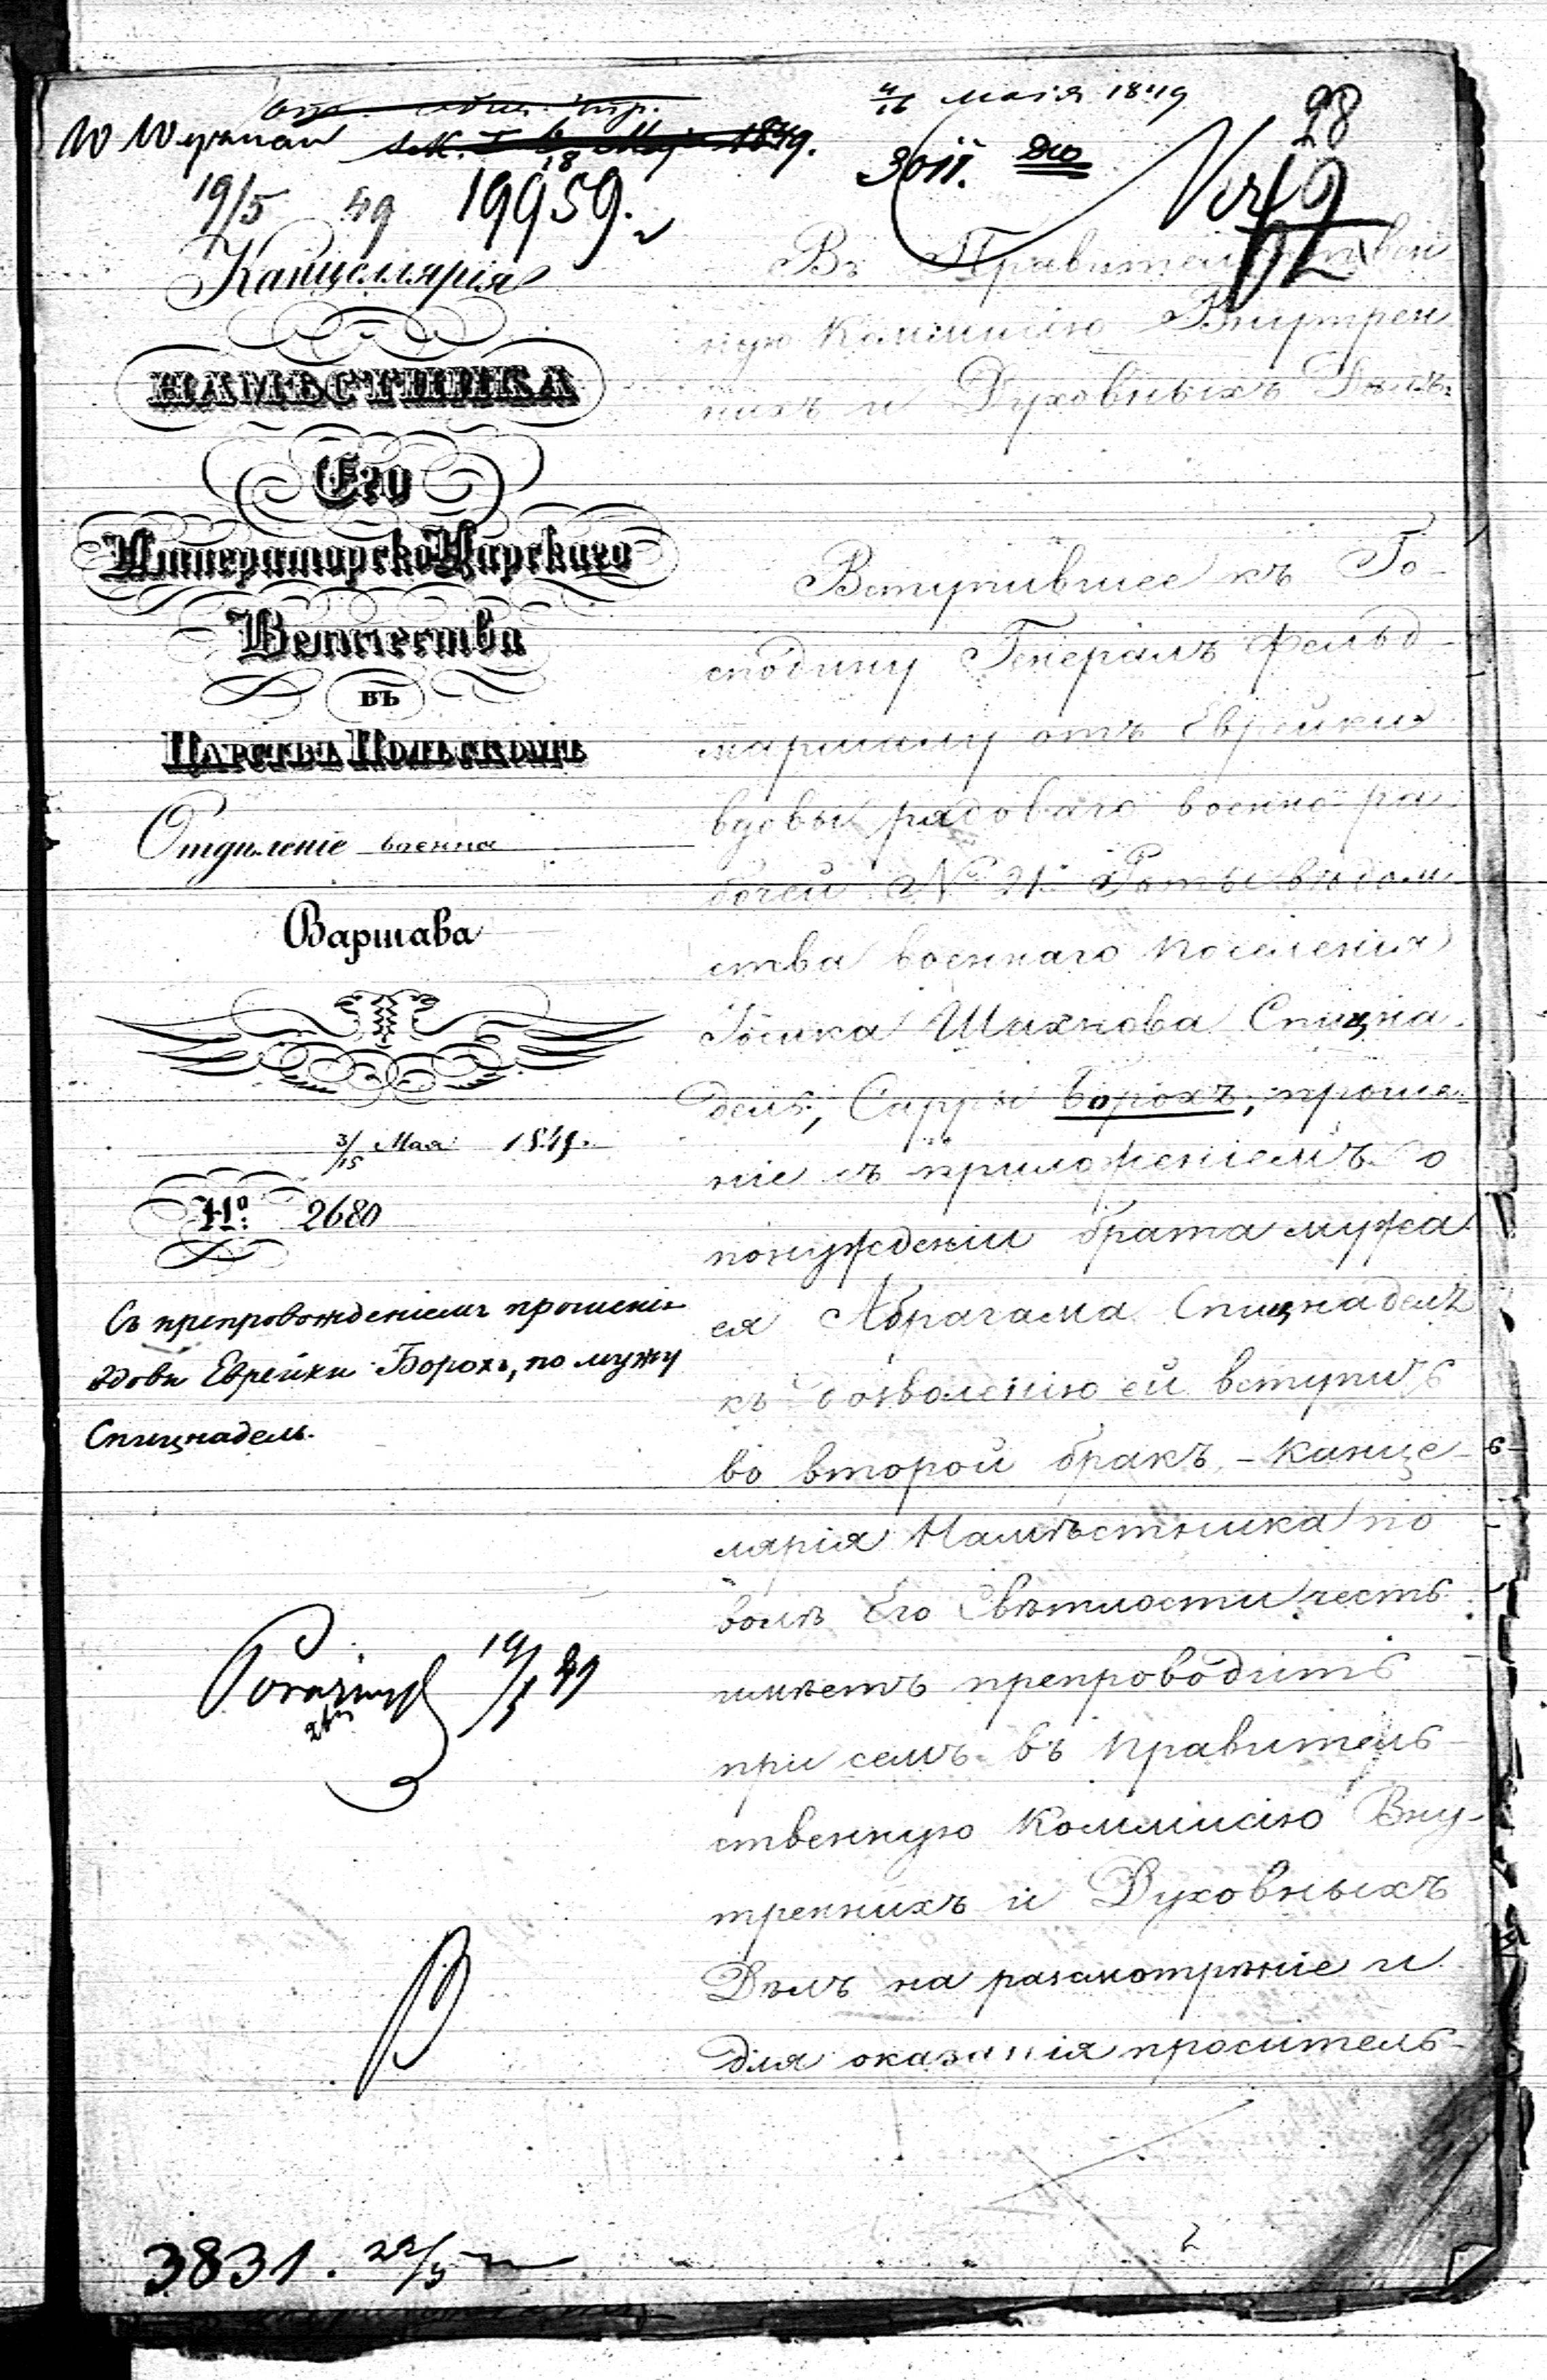 4/16 Мая 1849
28
W Wydział
1849.
19/5 49 19959.
Канцелярія
НАМѢСТНИКА
Его
Императорско Царскаго
Величества
въ
Царствѣ Польскомъ
Отдѣленіе военное
Варшава
3/15 Мая 1849.
№ 2680
Съ препровожденіемъ прошенія
вдовы Еврейки Борохъ, по мужу
Спицнадель.
19/5 49
3831. 22/5
Въ Правительствен
ную Коммисію Внутрен
нихъ и Духовныхъ Дѣлъ.
Вступившее къ Го-
сподину Генералъ Фельд-
маршалу отъ Еврейки
вдовы рядоваго военно-ра-
бочей № 21 Роты вѣдом
ства военнаго поселенія
Іосика Шихнова Спицна-
дель, Сарры Борохъ, проше-
ніе съ приложеніемъ о
понужденіи брата мужа
ея Абрагама Спицнадель
къ дозволенію ей вступить
во второй бракъ, - Канце-
лярія Намѣстника по
волѣ Его Свѣтлости честь
имѣетъ препроводить
при семъ въ Правитель-
ственную Коммисію Вну-
треннихъ и Духовныхъ
Дѣлъ на разсмотрѣніе и
для оказанія проситель-
2